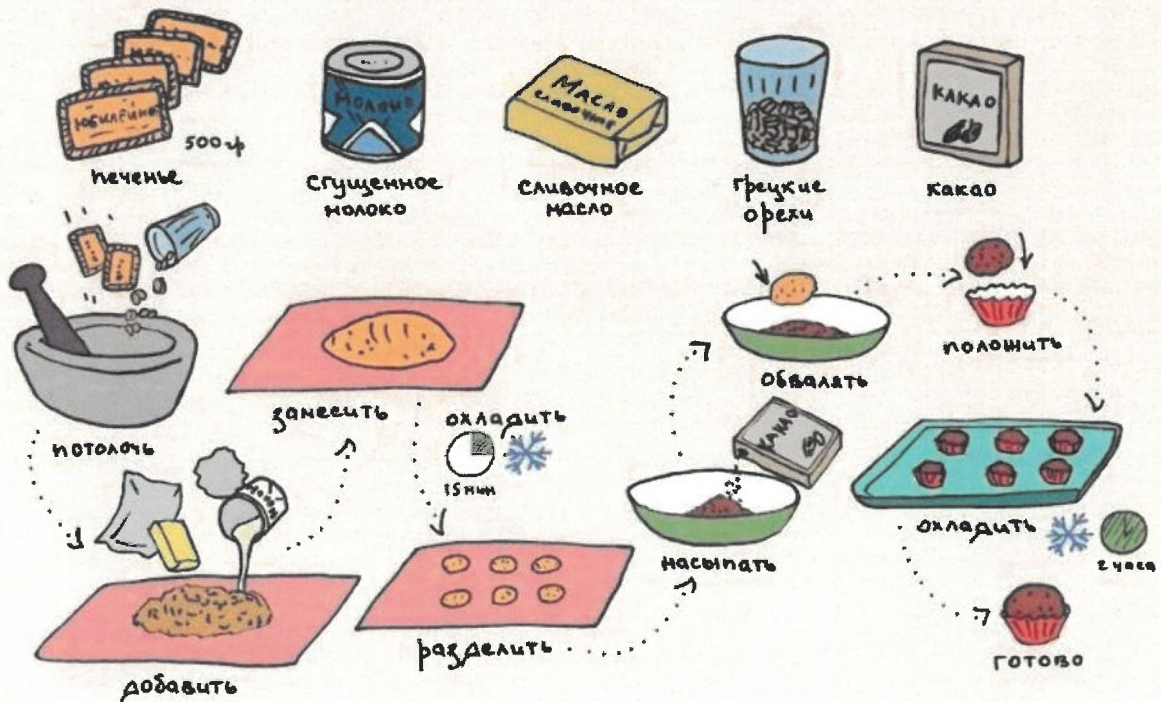 ЮБИЛЕЙНОЕ
500 гр
печенье
МОЛОКО
сгущенное
молоко
Масло
сливочное
сливочное
масло
грецкие
орехи
КАКАО
какао
потолочь
добавить
замесить
охладить
15 мин
разделить
КАКАО
насыпать
обвалять
положить
охладить
2 часа
готово